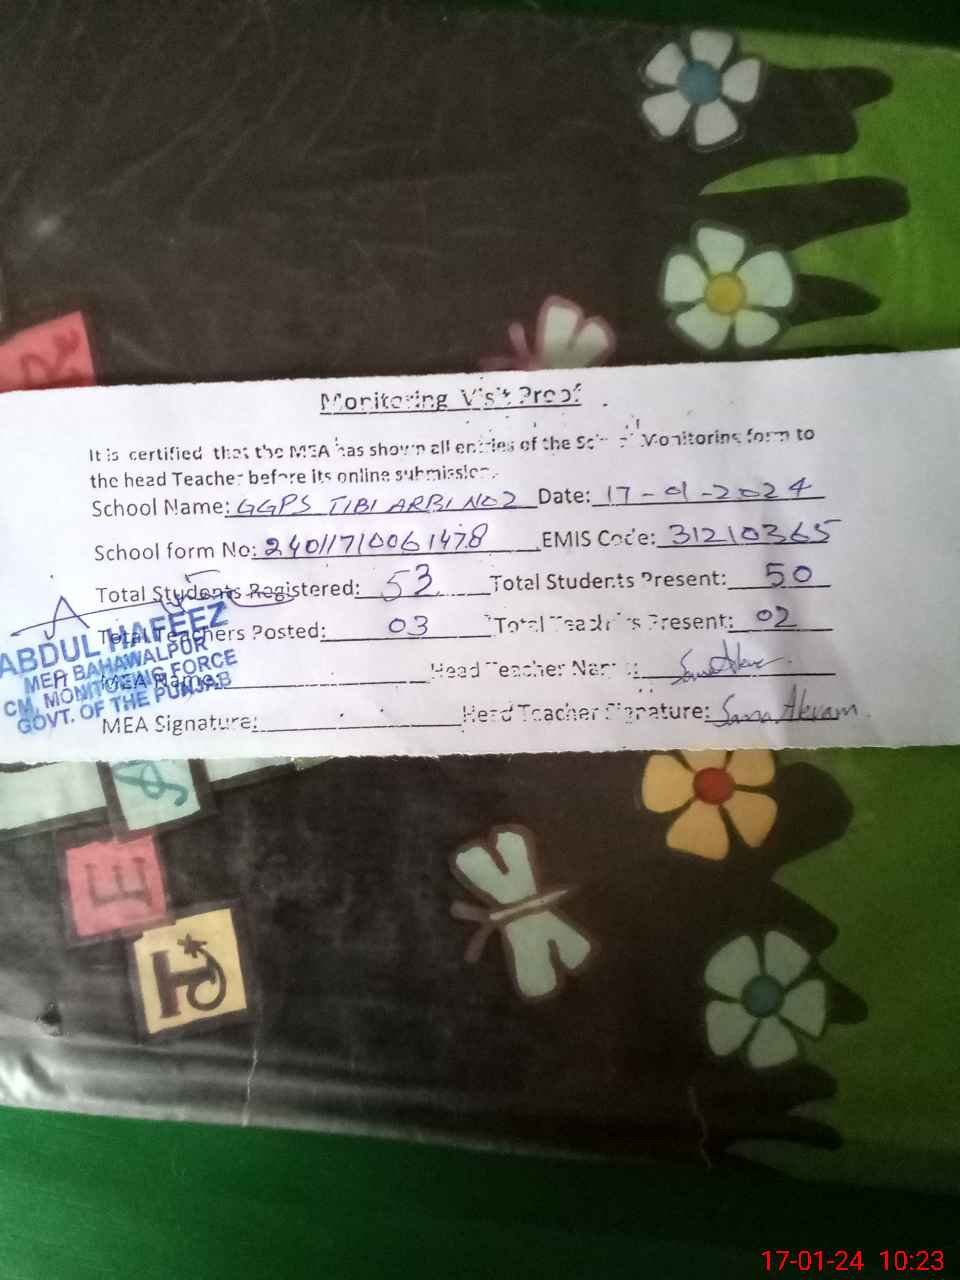 Monitoring Visit Proof
It is certified that the MEA has shown all entries of the School Monitoring form to
the head Teacher before its online submission.
School Name: GGPS TIBI ARBI NO2 Date: 17-01-2024
School form No: 24011710061478 EMIS Code: 31210365
Total Students Registered: 53 Total Students Present: 50
Total Teachers Posted: 03 Total Teachers Present: 02
MEA Name: Head Teacher Name:
MEA Signature: Head Teacher Signature: Sana Akram
ABDUL HAFEEZ
MEA BAHAWALPUR
CM, MONITORING FORCE
GOVT. OF THE PUNJAB
E
17-01-24 10:23